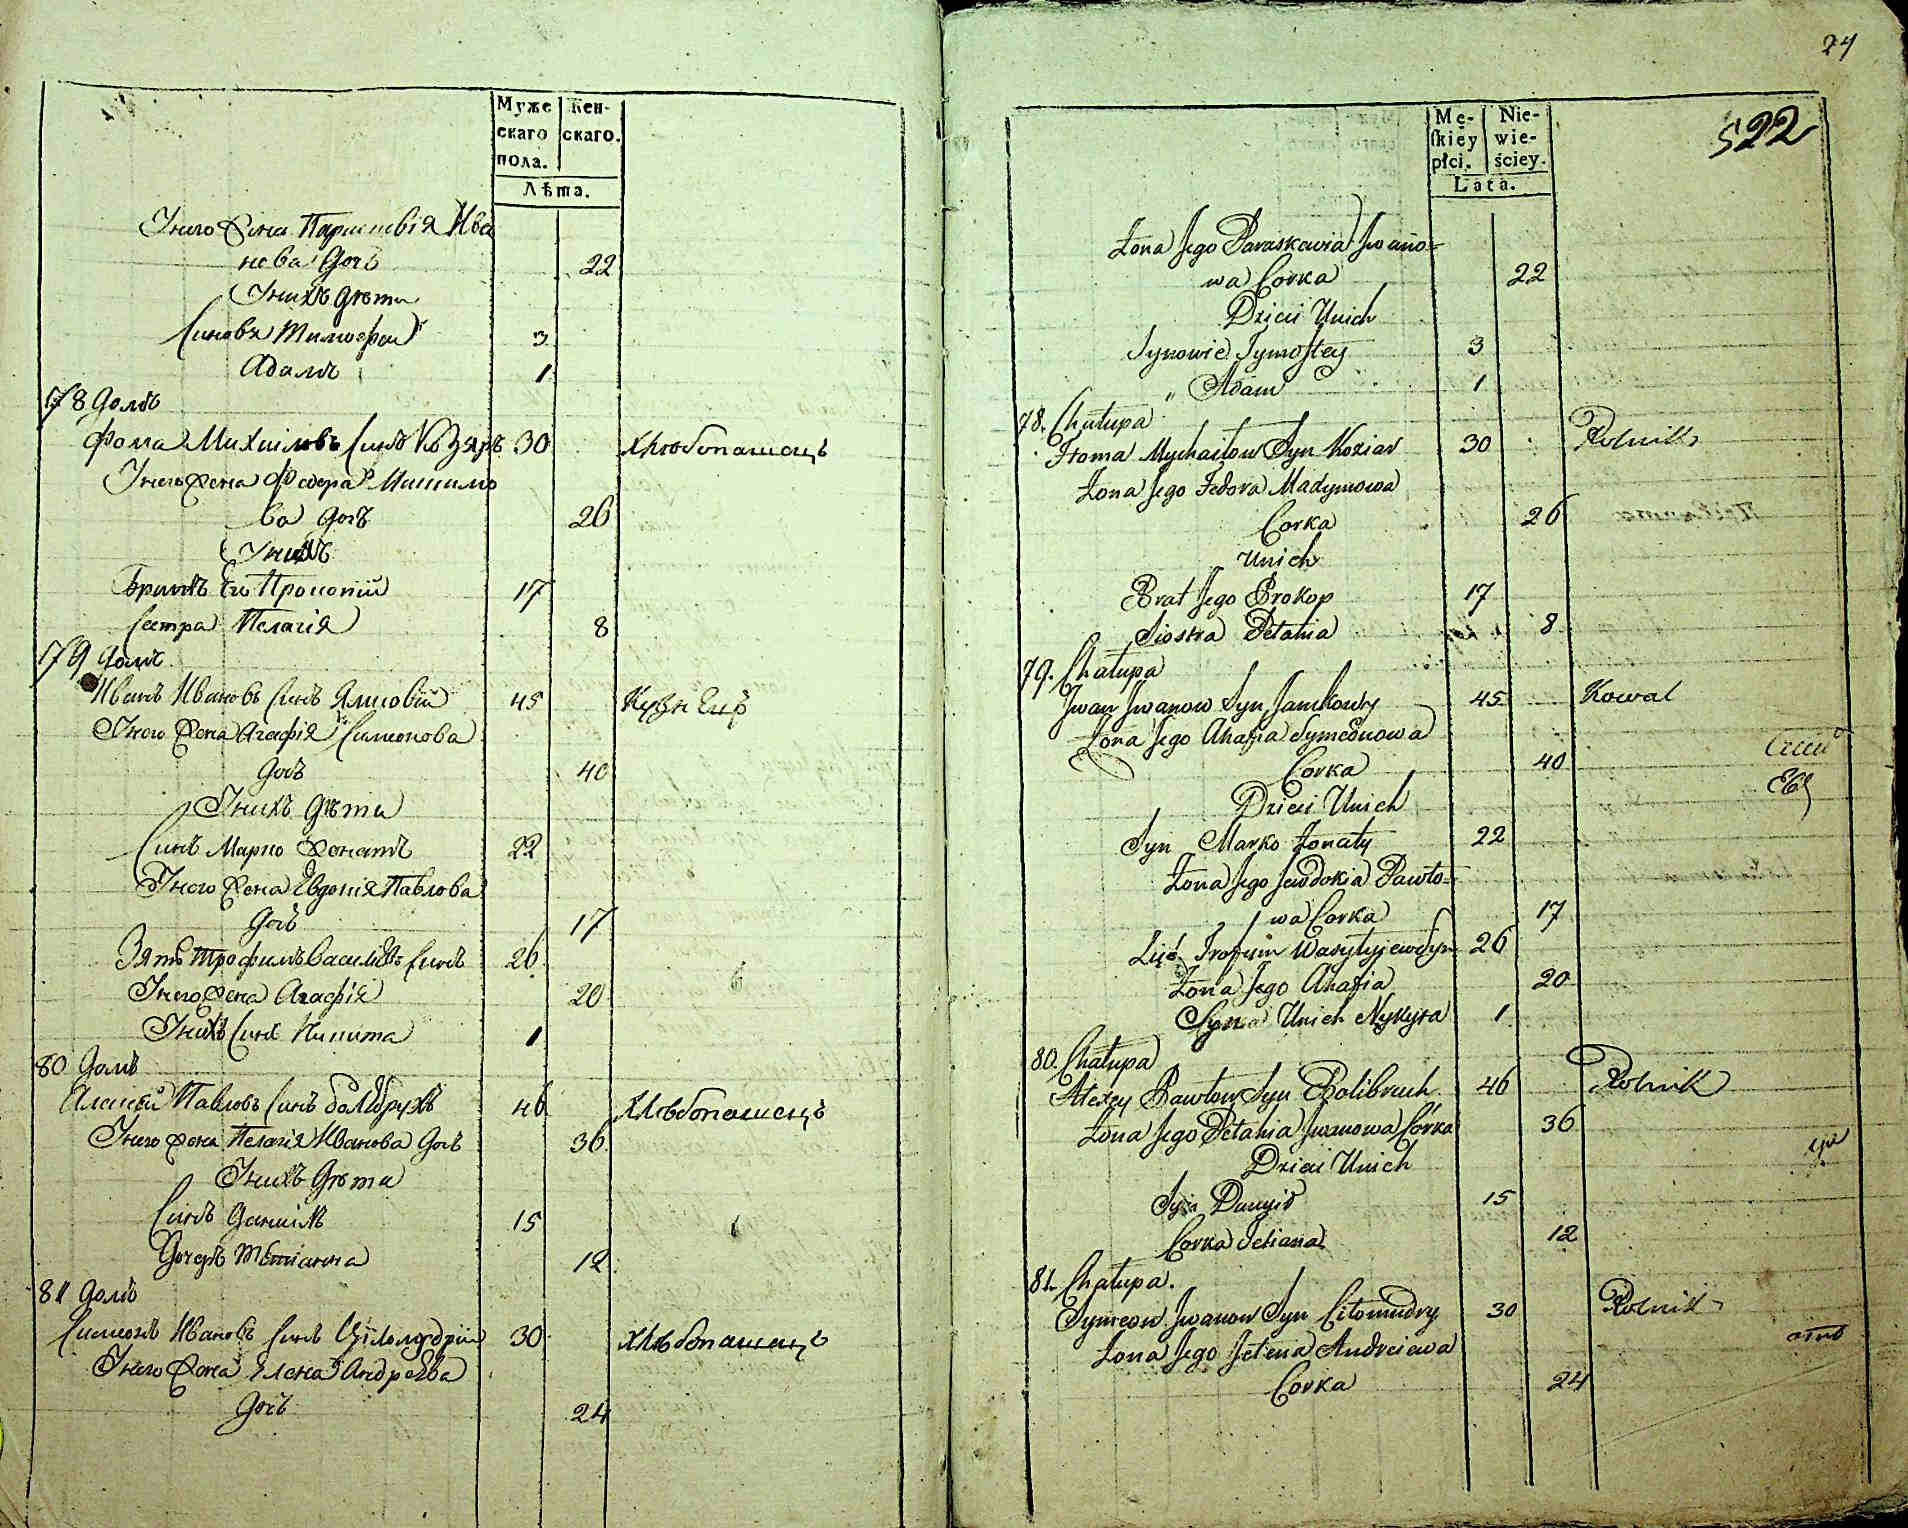 Муже
скаго
пола.
Жен-
скаго.
Лѣта.
Унего Жена Парасквія Ива
нова Дочь
22
Унихъ дѣти
Синовя Тимофей
3
Адамъ
1
78 Домъ
Фома Михайловъ Синъ Козяръ
30
Хлѣбопашецъ
Унего Жена Федора
ва Дочь
26
Унихъ
Братъ Его Прокопій
17
Сестра Пелагія
8
79 Домъ
Иванъ Ивановъ Синъ
45
Кузнецъ
Унего Жена Агафія Симеонова
Дочь
40
Унихъ Дѣти
Синъ Марко Женатъ
22
Унего Жена Евдокія Павлова
Дочь
17
Зять Трофимъ Василіевъ Синъ
26
Унего Жена Агафія
20
Унихъ Синъ Никита
1
80 Домъ
Алексѣй Павловъ Синъ Болибрухъ
46
Хлѣбопашецъ
Унего Жена Пелагія Иванова Дочь
36
Унихъ Дѣти
Синъ Даниилъ
15
Дочерь Тетіанна
12
81 Домъ
Симеонъ Ивановъ Синъ Цѣломудрій
30
Хлѣбопашецъ
Унего Жена Елена Андреева
Дочь
24
24
522
Mę-
skiey
płci.
Nie-
wie-
ściey.
Lata.
Żona Jego Paraskewia Jwano-
wa Corka
22
Dzieci Unich
Synowie Tymoftey
3
„ Adam
1
78. Chałupa
Homa Mychaiłow Syn Koziar
30
Rolnik
Żona Jego Fedora Madymowa
Corka
26
Unich
Brat Jego Prokop
17
Siostra Pełahia
8
79. Chałupa
Jwan Jwanow Syn Jamkowy
45
Kowal
Żona Jego Ahafia Symeonowa
Corka
40
Dzieci Unich
Syn Marko Żonaty
22
Żona Jego Jewdokia Pawło-
wa Corka
17
Zięć Trofim Wasylyjew Syn
26
Żona Jego Ahafia
20
Syn Unich Nykyta
1
80. Chałupa
Alexey Pawłow Syn Bolibruch
46
Rolnik
Żona Jego Pełahia Jwanowa Córka
36
Dzieci Unich
Syn Danyił
15
Corka Tetiana
12
81. Chałupa.
Symeon Jwanow Syn Cilomudry
30
Rolnik
Żona Jego Jełena Andreiewa
Corka
24